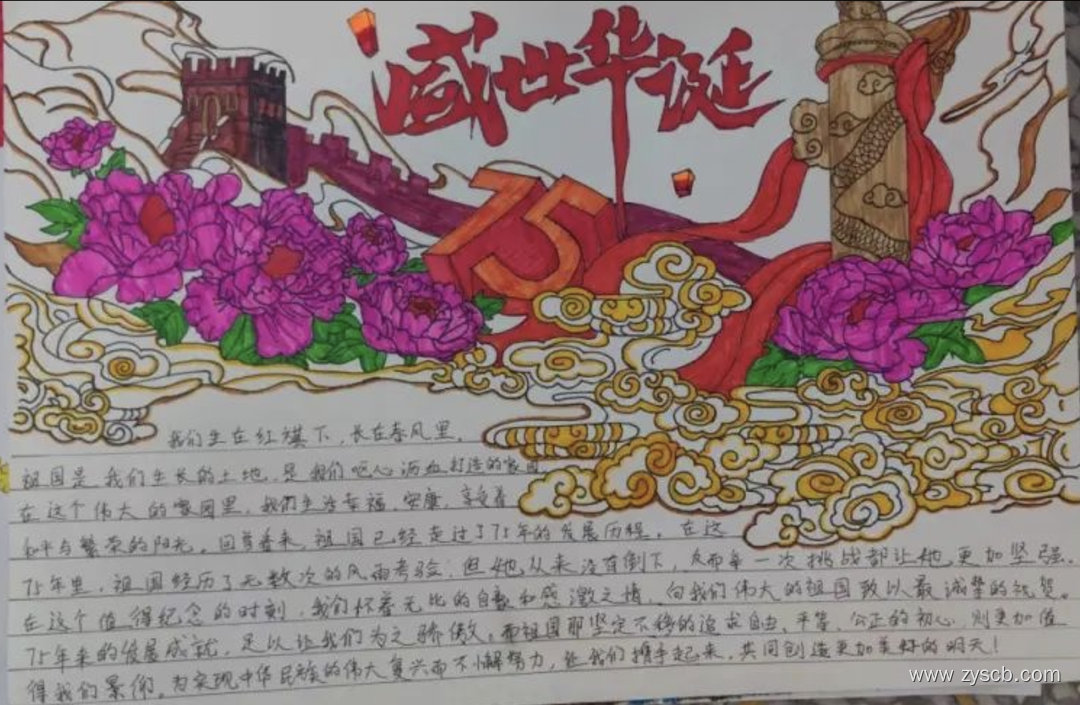 盛世华诞
75
我们生在红旗下,长在春风里。
祖国是我们生长的土地,是我们呕心沥血打造的家园
在这个伟大的家园里,我们生活幸福,安康,享受着
和平与繁荣的阳光。回首看来,祖国已经走过了75年的发展历程。在这
75年里,祖国经历了无数次的风雨考验,但她从来没有倒下,反而每一次挑战都让她更加坚强。
在这个值得纪念的时刻,我们怀着无比的自豪和感激之情,向我们伟大的祖国致以最诚挚的祝贺。
75年来的发展成就,足以让我们为之骄傲。而祖国那坚定不移的追求自由,平等,公正的初心,则更加值
得我们景仰。为实现中华民族的伟大复兴而不懈努力,让我们携手起来,共同创造更加美好的明天!
www.zyscb.com